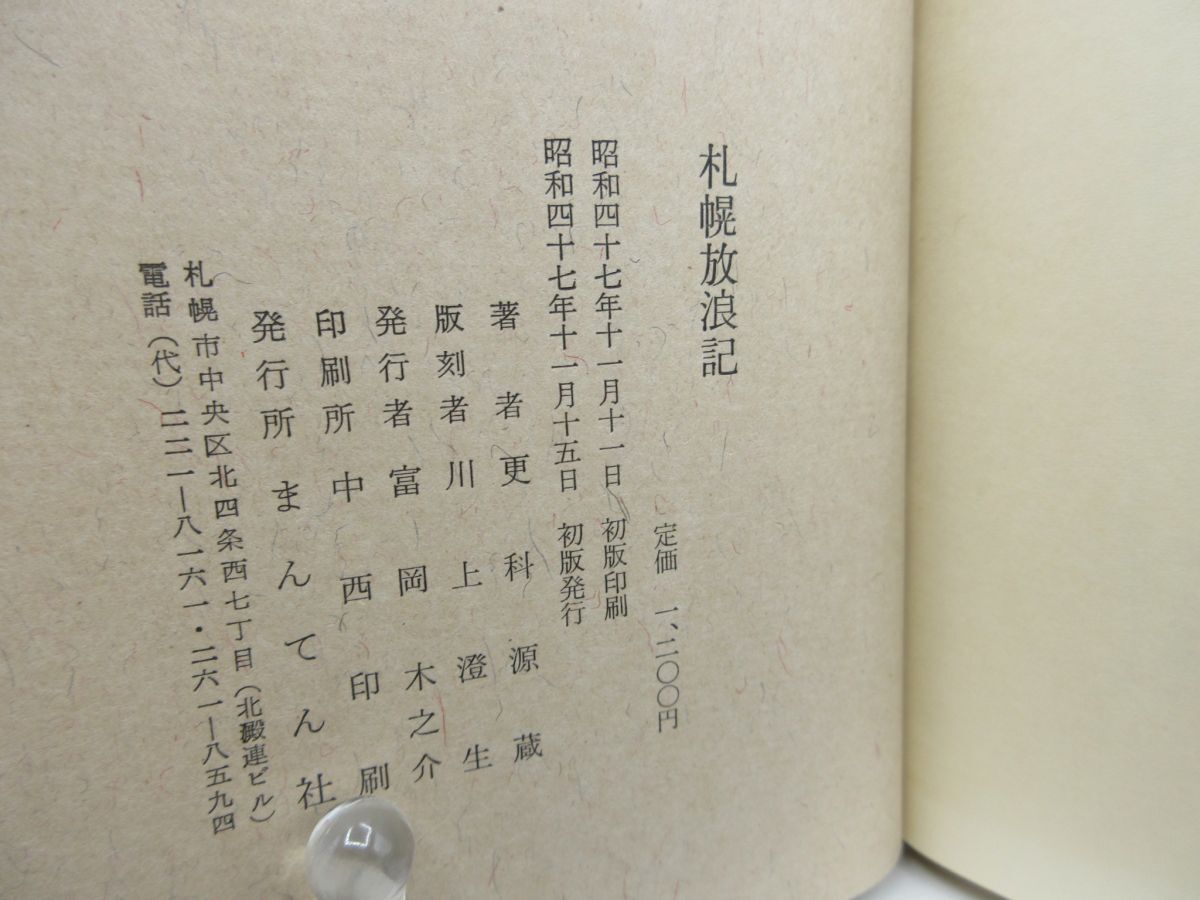 札幌放浪記
定価 一、二〇〇円
昭和四十七年十一月十一日 初版印刷
昭和四十七年十一月十五日 初版発行
著者 更科源蔵
版刻者 川上澄生
発行者 富岡木之介
印刷所 中西印刷
発行所 まんてん社
札幌市中央区北四条西七丁目(北殿連ビル)
電話(代)二二一―八一六一・二六一―八五九四